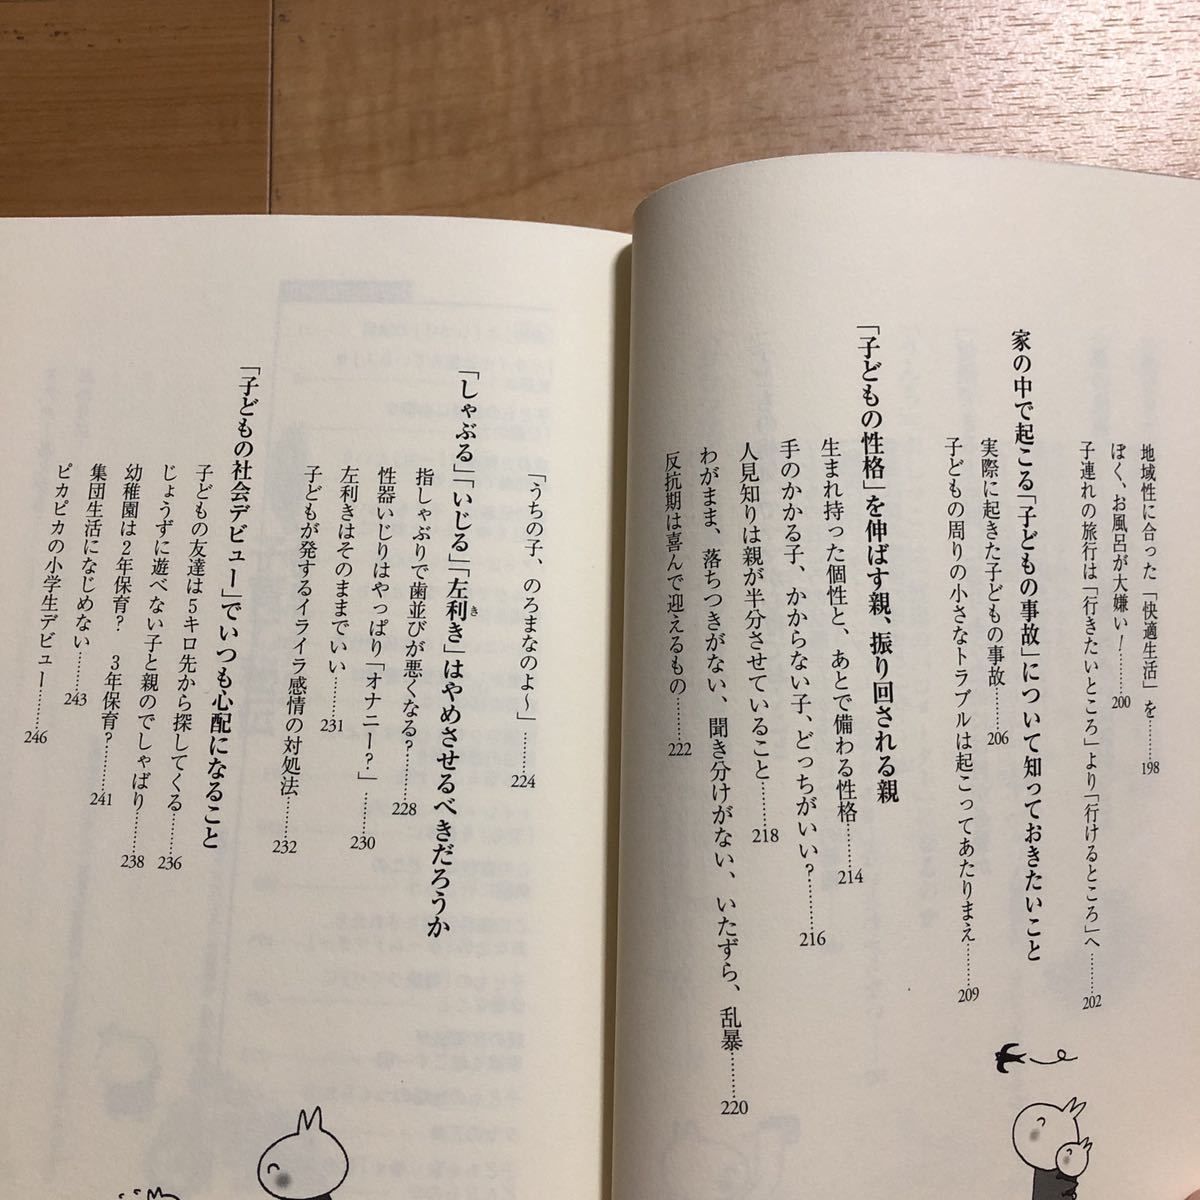 地域性に合った「快適生活」を……198
ぼく、お風呂が大嫌い!……200
子連れの旅行は「行きたいところ」より「行けるところ」へ……202
家の中で起こる「子どもの事故」について知っておきたいこと
実際に起きた子どもの事故……206
子どもの周りの小さなトラブルは起こってあたりまえ……209
「子どもの性格」を伸ばす親、振り回される親
生まれ持った個性と、あとで備わる性格……214
手のかかる子、かからない子、どっちがいい?……216
人見知りは親が半分させていること……218
わがまま、落ちつきがない、聞き分けがない、いたずら、乱暴……220
反抗期は喜んで迎えるもの……222
「うちの子、のろまなのよ〜」……224
「しゃぶる」「いじる」「左利き」はやめさせるべきだろうか
き
指しゃぶりで歯並びが悪くなる?……228
性器いじりはやっぱり「オナニー?」……230
左利きはそのままでいい……231
子どもが発するイライラ感情の対処法……232
「子どもの社会デビュー」でいつも心配になること
子どもの友達は5キロ先から探してくる……236
じょうずに遊べない子と親のでしゃばり……238
幼稚園は2年保育? 3年保育?……241
集団生活になじめない……243
ピカピカの小学生デビュー……246